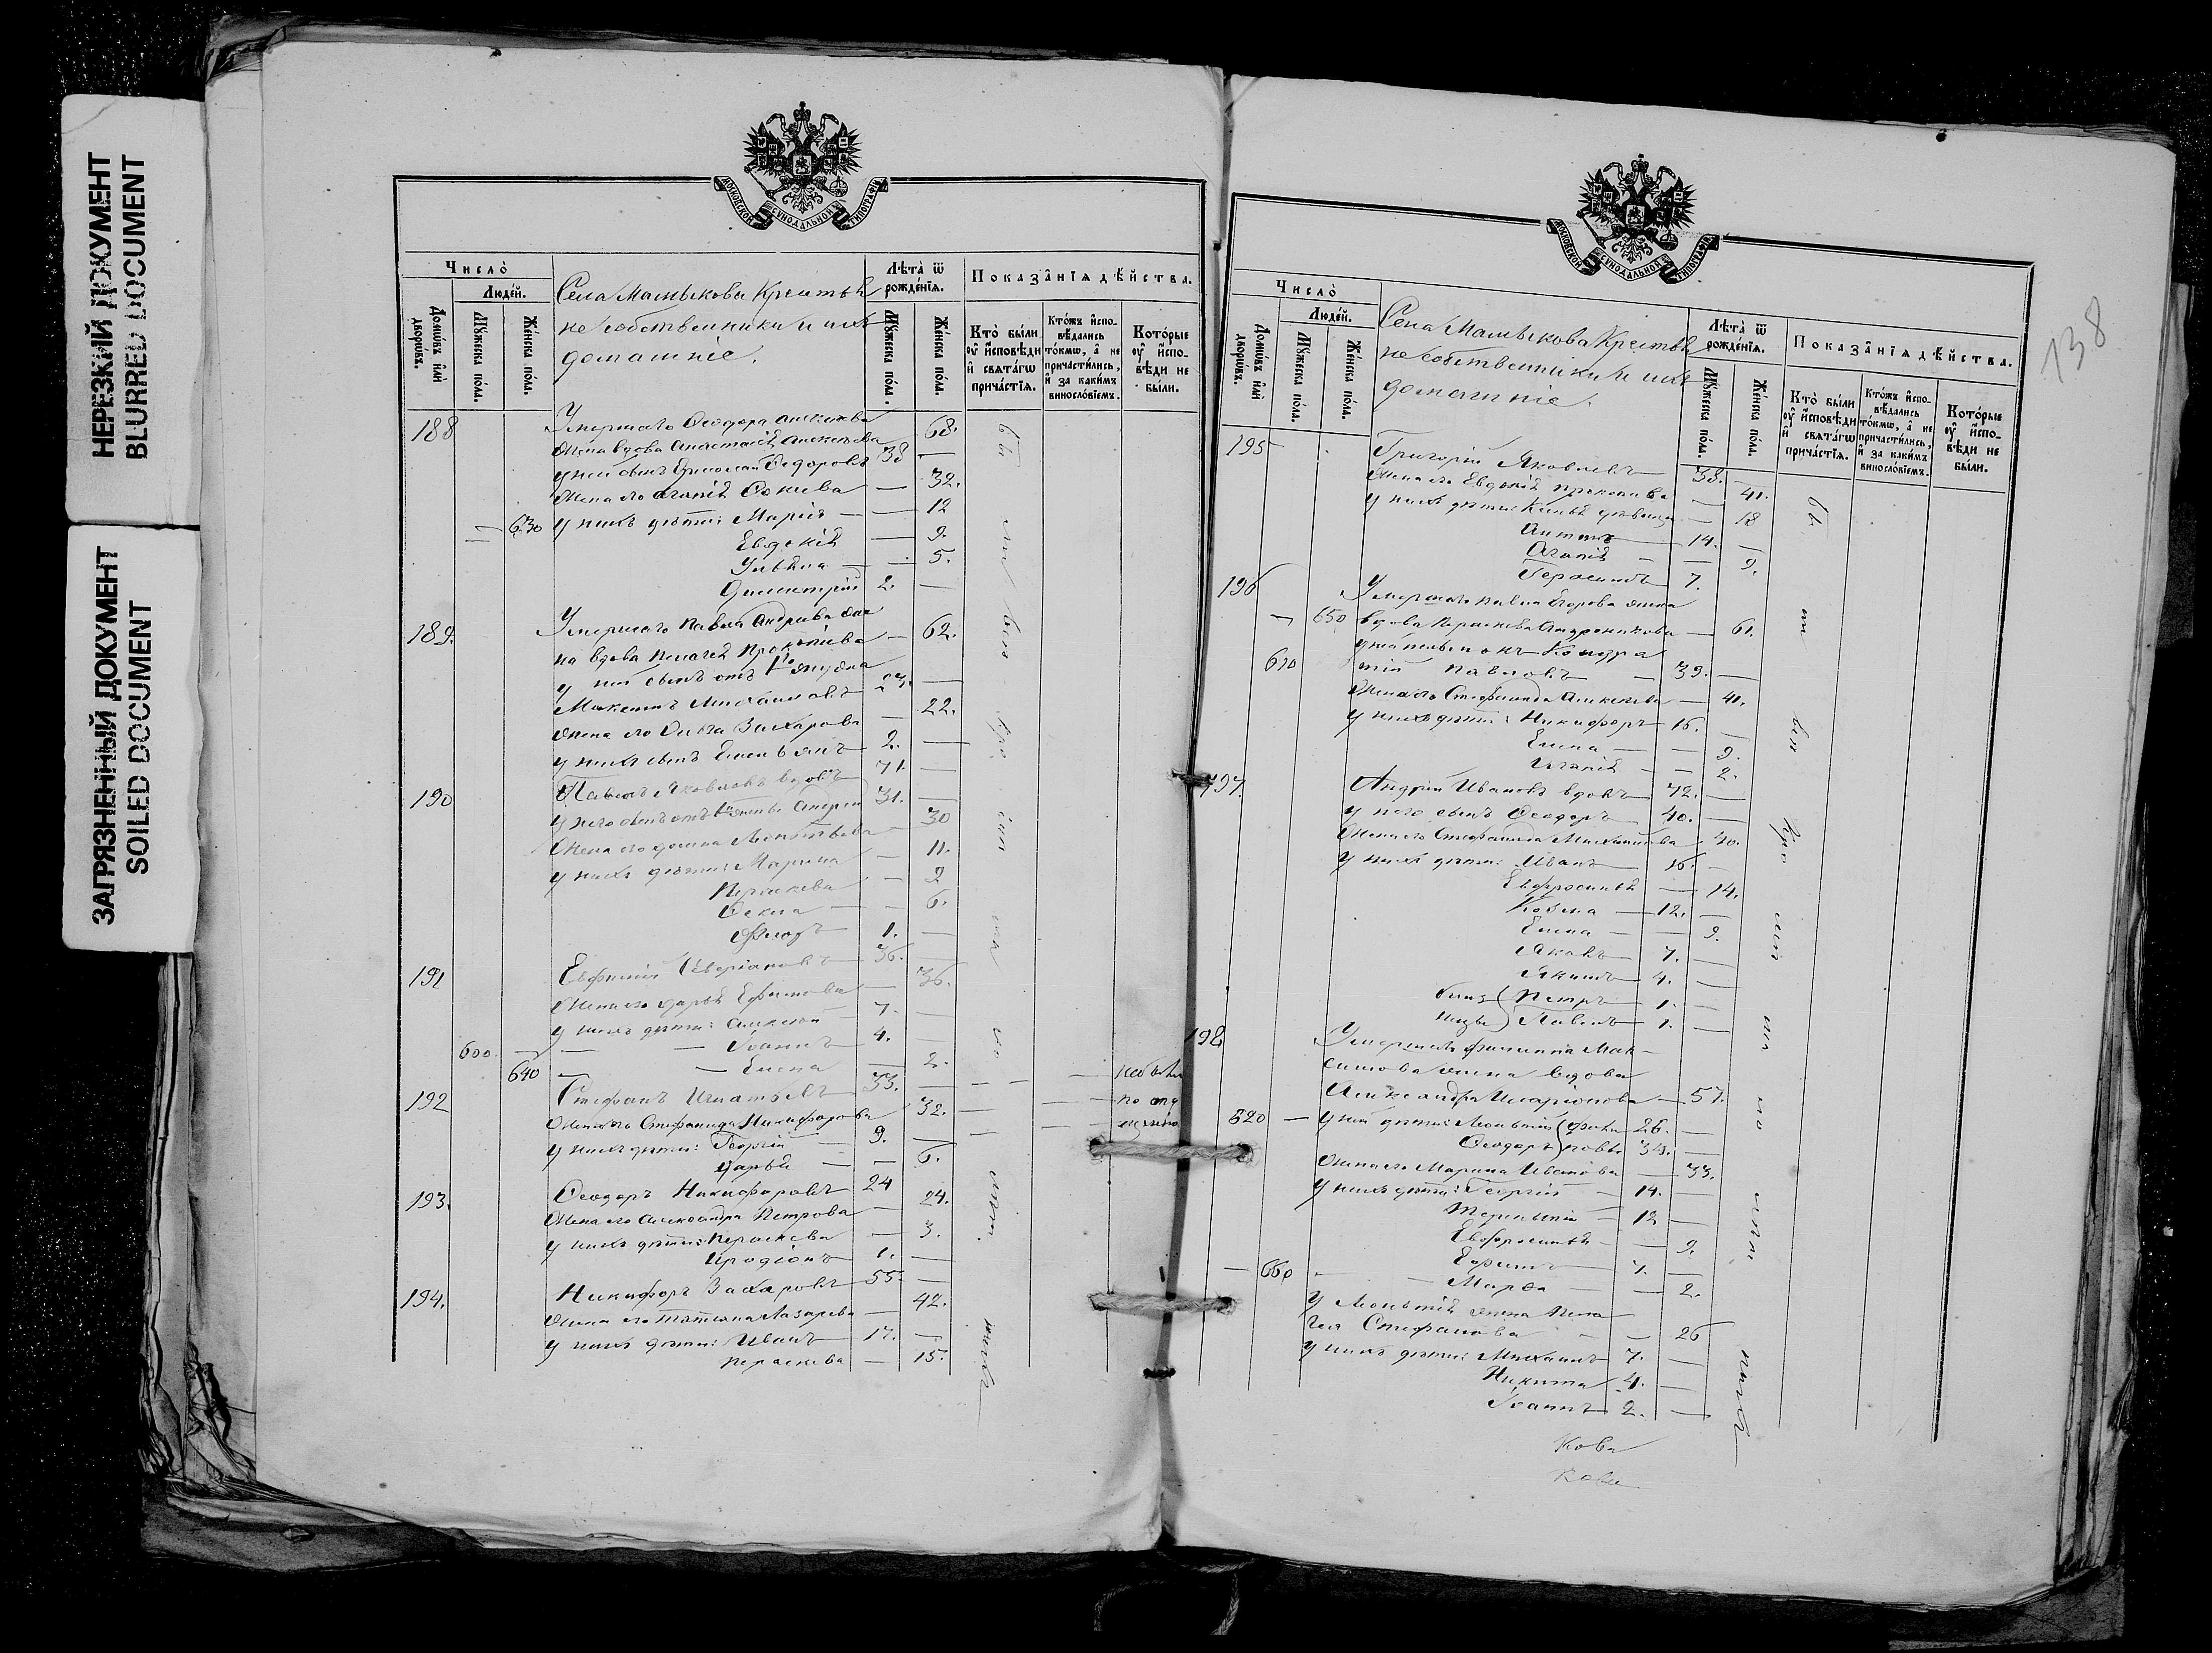 НЕРЕЗКИЙ ДОКУМЕНТ
BLURRED DOCUMENT
ЗАГРЯЗНЕННЫЙ ДОКУМЕНТ
SOILED DOCUMENT
МОСКОВСКОЙ СѴНОДАЛЬНОЙ ТИПОГРАФІИ
Число̀
Люде́й.
Домѡ́въ и҆лѝ дворѡ́въ.
Мꙋ́жеска по́ла.
Же́нска по́ла.
Села Мамыкова Крестья
не собственники и ихъ
домашніе.
Лѣта̀ ѿ рожде́нїѧ.
Мꙋ́жеска по́ла.
Же́нска по́ла.
Показа̑нїѧ дѣ́йства.
Кто̀ бы́ли ᲂу҆ и҆сповѣди и҆ свѧта́гѡ прича́стїѧ.
Кто́жъ и҆спо-вѣдались то́кмѡ, а҆ не причасти́лись, и҆ за каки́мъ винослові́емъ.
Кото́рые ᲂу҆ и҆спо-вѣди не бы́ли.
188 Умершаго Ѳеодора Алексѣева
жена вдова Анастасія Алексѣева 68.
у ней сынъ Ѳедоровъ 38 —
жена его Агапія — 32.
— 630 у нихъ дѣти: Марія — 12
Евдокія — 9.
Ульяна — 5.
Димитрій 2. —
189. Умершаго Павла Андреева же
на вдова Пелагея Прокопіева — 62.
у ней сынъ отъ 1го мужа
Максимъ Михайловъ 27. —
жена его Ольга Захарова — 22.
у нихъ сынъ Емельянъ 2. —
190 Павелъ Яковлевъ вдовъ 71. —
у него сынъ отъ жены Андрей 31. —
жена его Домна Леонтьева — 30
у нихъ дѣти: Марина — 11.
Параскева — 9
Ѳекла — 6.
Флоръ 1. —
191 Евфимій 36. —
жена его Дарья Ефимова — 36.
у нихъ дѣти: Алексѣй 7. —
600. — Іоаннъ 4. —
640 — Елена — 2.
192 Стефанъ Игнатьевъ 33. — не были
жена его Стефанида Никифорова — 32. по от
у нихъ дѣти: Георгій 9. —
Дарья — 6.
193. Ѳеодоръ Никифоровъ 24
жена его Александра Петрова — 24.
у нихъ дѣти: Параскева — 3.
Иродіонъ 1. —
194. Никифоръ Захаровъ 55. —
жена его Татіана Лазарева — 42.
у нихъ дѣти: Иванъ 17. —
Параскева — 15.
138
МОСКОВСКОЙ СѴНОДАЛЬНОЙ ТИПОГРАФІИ
Число̀
Люде́й.
Домѡ́въ и҆лѝ дворѡ́въ.
Мꙋ́жеска по́ла.
Же́нска по́ла.
Села Мамыкова Крестья
не собственники и ихъ
домашніе.
Лѣта̀ ѿ рожде́нїѧ.
Мꙋ́жеска по́ла.
Же́нска по́ла.
Показа̑нїѧ дѣ́йства.
Кто̀ бы́ли ᲂу҆ и҆сповѣди и҆ свѧта́гѡ прича́стїѧ.
Кто́жъ и҆спо-вѣдались то́кмѡ, а҆ не причасти́лись, и҆ за каки́мъ винослові́емъ.
Кото́рые ᲂу҆ и҆спо-вѣди не бы́ли.
195 Григорій Яковлевъ 38. —
жена его Евдокія Прокопіева — 41.
у нихъ дѣти: — 18
Антонъ 14. —
Агапія — 9.
Герасимъ 7.
196 Умершаго Павла Егорова жена
— 650 вдова Параскева Андроникова — 61.
у ней сынъ Кондра
610 тій Павловъ 39. —
жена его Стефанида Алексѣева — 41.
у нихъ дѣти: Никифоръ 16. —
Елена — 9.
Агапія — 2.
197. Андрей Ивановъ вдовъ 72. —
у него сынъ Ѳеодоръ 40. —
жена его Стефанида Михайлова 40.
у нихъ дѣти: Иванъ 16. —
Евфросинья — 14.
Козьма 12. —
Елена — 9.
Яковъ 7. —
Якимъ 4. —
близ Петръ 1. —
нецы Павелъ 1. —
198 Умершаго Филиппа Мак-
симова жена вдова
Александра Иларіонова — 57.
620 — у ней дѣти: Леонтій Фили 26. —
Ѳеодоръ повы 34. —
жена его Марина Иванова — 33.
у нихъ дѣти: Георгій 14. —
Терентій 12 —
Евфросинья — 9.
— 660 Ефимъ 7. —
Марѳа — 2.
у Леонтія жена Пела
гея Стефанова — 26
у нихъ дѣти: Михаилъ 7. —
Никита 4. —
Іоаннъ 2. —